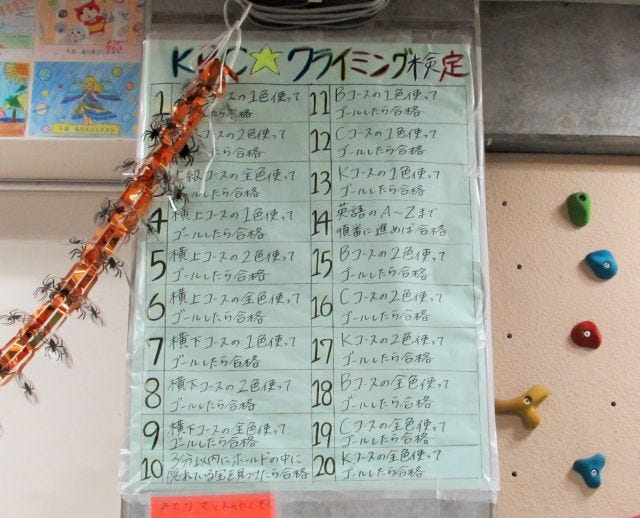 クライミング検定
1 コースの1色使って
たら合格
コースの2色使って
たら合格
上級コースの全色使って
ゴールしたら合格
4 横上コースの1色使って
ゴールしたら合格
5 横上コースの2色使って
ゴールしたら合格
6 横上コースの全色使って
ゴールしたら合格
7 横下コースの1色使って
ゴールしたら合格
8 横下コースの2色使って
ゴールしたら合格
9 横下コースの全色使って
ゴールしたら合格
10 3分以内にホールドの中に
隠れている宝を見つけたら合格
11 Bコースの1色使って
ゴールしたら合格
12 Cコースの1色使って
ゴールしたら合格
13 Kコースの1色使って
ゴールしたら合格
14 英語のA〜Zまで
順番に進めば合格
15 Bコースの2色使って
ゴールしたら合格
16 Cコースの2色使って
ゴールしたら合格
17 Kコースの2色使って
ゴールしたら合格
18 Bコースの全色使って
ゴールしたら合格
19 Cコースの全色使って
ゴールしたら合格
20 Kコースの全色使って
ゴールしたら合格